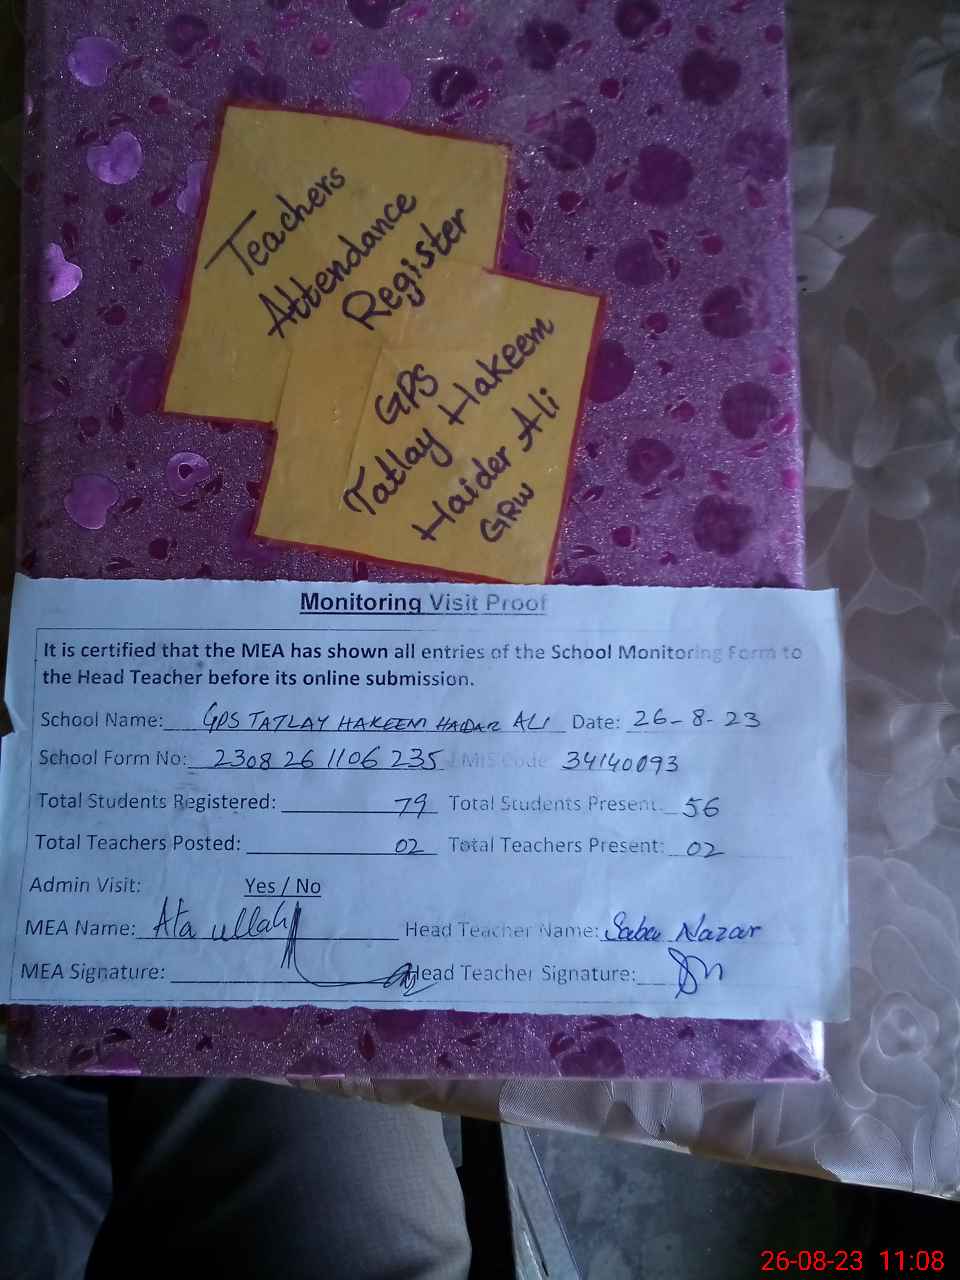 Teachers
Attendance
Register
GPS
Tatlay Hakeem
Haider Ali
GRW
Monitoring Visit Proof
It is certified that the MEA has shown all entries of the School Monitoring Form to
the Head Teacher before its online submission.
School Name: GPS TATLAY HAKEEM HAIDAR ALI Date: 26-8-23
School Form No: 2308 26 1106 235 EMIS Code: 34140093
Total Students Registered: 79 Total Students Present: 56
Total Teachers Posted: 02 Total Teachers Present: 02
Admin Visit: Yes / No
MEA Name: Ata ullah Head Teacher Name: Saba Nazar
MEA Signature: Head Teacher Signature:
26-08-23 11:08